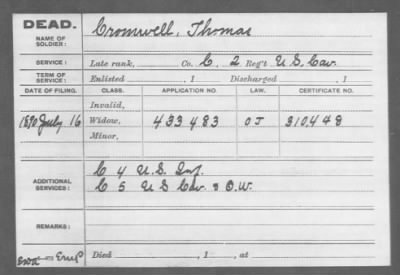 DEAD.
NAME OF SOLDIER: Cromwell, Thomas
SERVICE: Late rank, Co. C, 2 Reg't U.S. Cav.
TERM OF SERVICE: Enlisted , 1 Discharged , 1
DATE OF FILING. CLASS. APPLICATION NO. LAW. CERTIFICATE NO.
Invalid,
1890 July 16 Widow, 433 483 O J 310,448
Minor,
ADDITIONAL SERVICES: C 4 U.S. Inf.
C 5 U S Cav. & O.W.
REMARKS:
Died , 1 , at